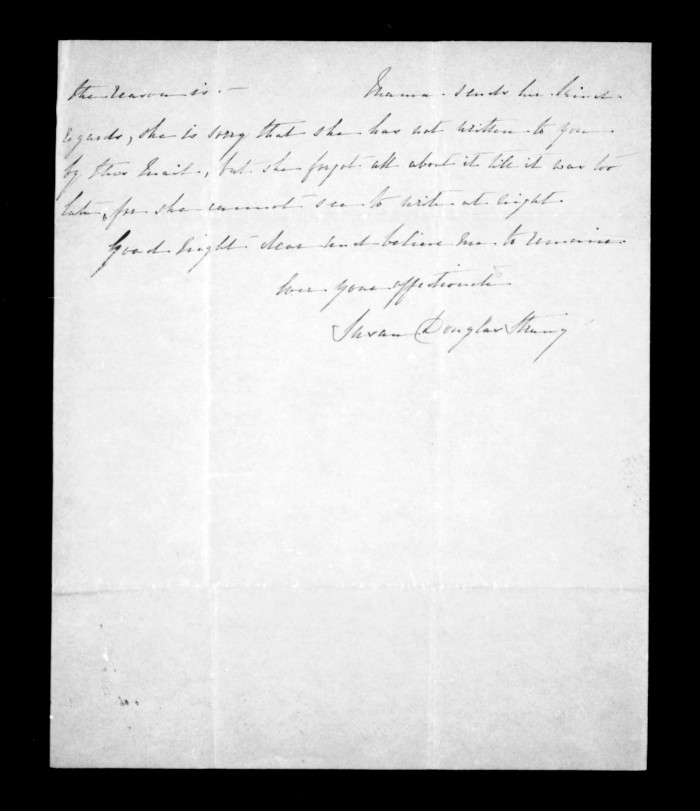 the reason is. — Mama sends her kind
regards, she is sorry that she has not written to you
by this Mail, but she forgot all about it till it was too
late, for she cannot see to write at night
Good night dear and believe me to remain
Ever your affectionate
Susan Douglas Strang